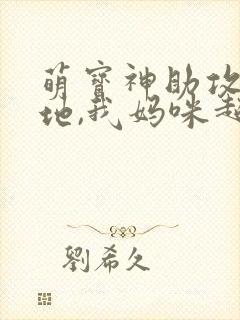 萌宝神助攻
地,我妈咪超
劉希久